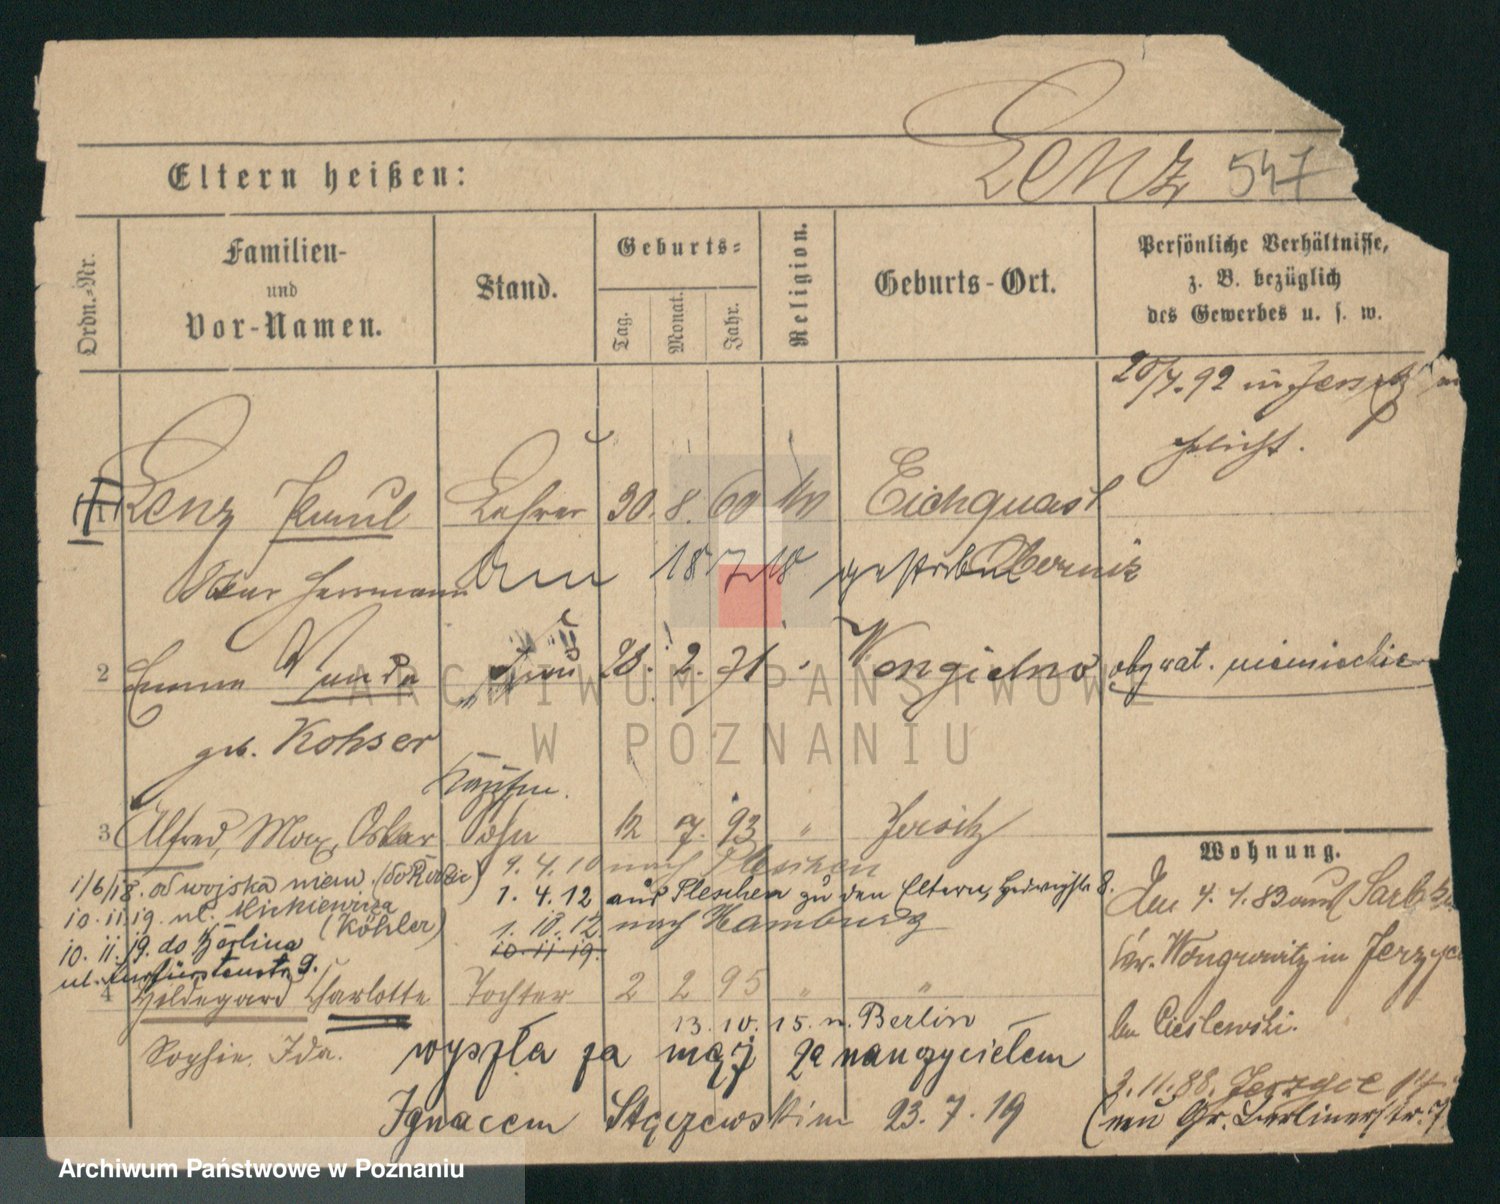 Lenz 547
Eltern heißen:
Ordn.-Nr.
Familien-
und
Vor-Namen.
Stand.
Geburts-
Tag.
Monat.
Jahr.
Religion.
Geburts-Ort.
Persönliche Verhältnisse,
z. B. bezüglich
des Gewerbes u. s. w.
20/7.92 in Jersitz
Lenz Paul Lehrer 30. 8. 60 Eichquast
Herrmann am 18 7 18 gestorben Obornik
2 Emma Wanda Frau 28. 2. 71 " Wongielno obywat. niemieckie
geb. Kohser
Kaufm.
3 Alfred, Max, Oskar Sohn 12 7. 93 " Jersitz
1/6/18. od wojska niem. 9. 4. 10 nach Pleschen
1. 4. 12 aus Pleschen zu den Eltern, Hedwigstr 8.
10. 11. 19. ul. Mickiewicza (Köhler) 1. 10. 12 nach Hamburg
10. 11. 19. do Berlina 10. 11. 19.
ul. Kurfürstenstr 9.
4 Hildegard Charlotte Tochter 2 2 95 " "
13. 10. 15. n. Berlin
Sophie Ida. wyszła za mąż za nauczycielem
Ignacem Stęczewskim 23. 7. 19
Wohnung.
Den 4. 7. 83 aus Sarbka
Kr. Wongrowitz in Jerzyce
bei Cieślewski.
3. 11. 88. Jerzyce 14
(neu Gr. Berlinerstr. 7
ARCHIWUM PAŃSTWOWE
W POZNANIU
Archiwum Państwowe w Poznaniu